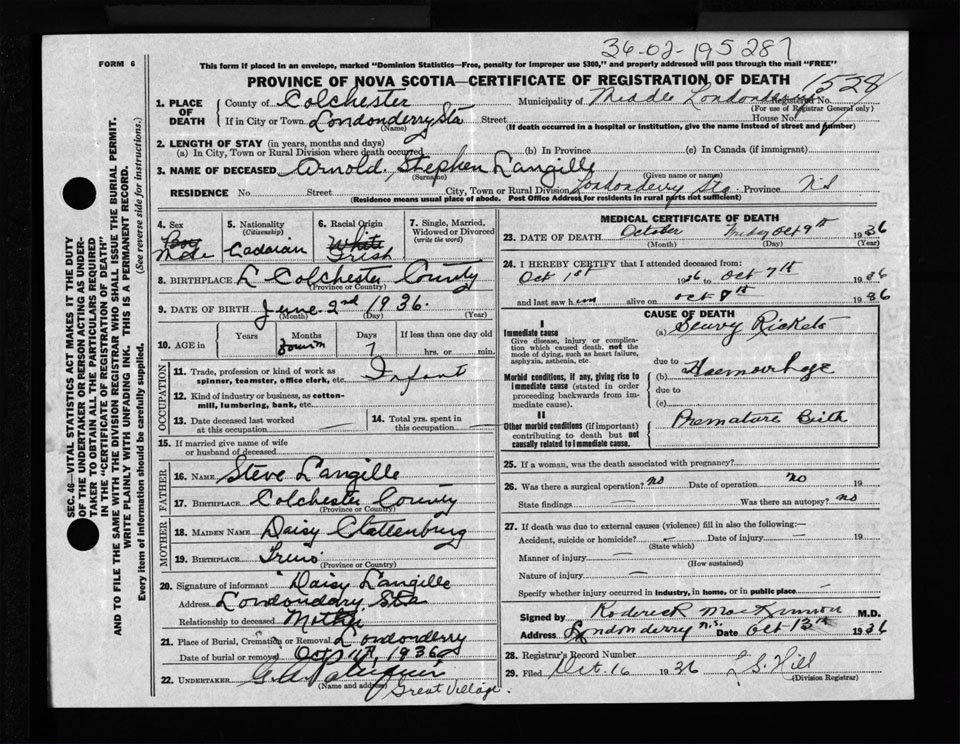 36-02-195287
FORM 6
This form if placed in an envelope, marked "Dominion Statistics—Free, penalty for improper use $300," and properly addressed will pass through the mail "FREE"
PROVINCE OF NOVA SCOTIA—CERTIFICATE OF REGISTRATION OF DEATH
1. PLACE OF DEATH
County of Colchester
Municipality of Middle Londonderry
Registered No. 1528
(For use of Registrar General only)
If in City or Town Londonderry Sta Street House No.
(Name)
(If death occurred in a hospital or institution, give the name instead of street and number)
2. LENGTH OF STAY (in years, months and days)
(a) In City, Town or Rural Division where death occurred (b) In Province (c) In Canada (if immigrant)
3. NAME OF DECEASED Arnold Stephen Langille
(Surname) (Given name or names)
RESIDENCE No. Street City, Town or Rural Division Londonderry Sta Province NS
(Residence means usual place of abode. Post Office Address for residents in rural parts not sufficient)
4. Sex
Boy
Male
5. Nationality
(Citizenship)
Canadian
6. Racial Origin
White
Irish
7. Single, Married, Widowed or Divorced
(write the word)
8. BIRTHPLACE Colchester County
(Province or Country)
9. DATE OF BIRTH June 2nd 1936.
(Month) (Day) (Year)
10. AGE in
Years
Months
four m
Days
7
If less than one day old
hrs. or min.
OCCUPATION
11. Trade, profession or kind of work as spinner, teamster, office clerk, etc. Infant
12. Kind of industry or business, as cotton-mill, lumbering, bank, etc.
13. Date deceased last worked at this occupation —
14. Total yrs. spent in this occupation —
15. If married give name of wife or husband of deceased
FATHER
16. NAME Steve Langille
17. BIRTHPLACE Colchester County
(Province or Country)
MOTHER
18. MAIDEN NAME Daisy Clattenburg
19. BIRTHPLACE Truro
(Province or Country)
20. Signature of informant Daisy Langille
Address Londondary Sta
Relationship to deceased Mother
21. Place of Burial, Cremation or Removal Londonderry
Date of burial or removal Oct 11th, 1936
22. UNDERTAKER
(Name and address)
Great Village.
MEDICAL CERTIFICATE OF DEATH
23. DATE OF DEATH October Friday Oct 9th 1936
(Month) (Day) (Year)
24. I HEREBY CERTIFY that I attended deceased from:
Oct 1st 1936 to Oct 7th 1936
and last saw him alive on Oct 8th 1936
CAUSE OF DEATH
I
Immediate cause
Give disease, injury or complication which caused death, not the mode of dying, such as heart failure, asphyxia, asthenia, etc.
(a) Scurvy Rickets
due to
Morbid conditions, if any, giving rise to immediate cause (stated in order proceeding backwards from immediate cause).
(b) Haemorrhage
due to
(c)
II
Other morbid conditions (if important) contributing to death but not causally related to immediate cause.
Premature Birth
25. If a woman, was the death associated with pregnancy?
26. Was there a surgical operation? no Date of operation no 19
State findings — Was there an autopsy? no
27. If death was due to external causes (violence) fill in also the following:—
Accident, suicide or homicide? — Date of injury — 19
(State which)
Manner of injury —
(How sustained)
Nature of injury —
Specify whether injury occurred in industry, in home, or in public place —
Signed by Roderick MacKinnon M.D.
Address Londonderry N.S. Date Oct 13th 1936
28. Registrar's Record Number
29. Filed Oct. 16 1936 L S. Hill
(Division Registrar)
SEC. 46—VITAL STATISTICS ACT MAKES IT THE DUTY
OF THE UNDERTAKER OR PERSON ACTING AS UNDER-
TAKER TO OBTAIN ALL THE PARTICULARS REQUIRED
IN THE "CERTIFICATE OF REGISTRATION OF DEATH"
AND TO FILE THE SAME WITH THE DIVISION REGISTRAR WHO SHALL ISSUE THE BURIAL PERMIT.
WRITE PLAINLY WITH UNFADING INK. THIS IS A PERMANENT RECORD.
Every item of information should be carefully supplied. (See reverse side for instructions.)